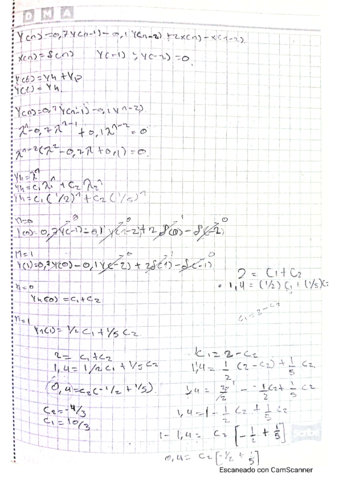 DMA
Y(n)=0,7Y(n-1)-0,1Y(n-2)+2x(n)-x(n-2)
x(n)=δ(n) Y(-1) ; Y(-2)=0
Y(t)=Yh+Yp
Y(t)=Yh
Y(n)=0,7Y(n-1)-0,1Y(n-2)
λ^n-0,7λ^n-1+0,1λ^n-2=0
λ^n-2(λ²-0,7λ+0,1)=0
Yh=λ^n
Yh=C1λ1^n+C2λ2^n
Yh=C1(1/2)^n+C2(1/5)^n
n=0
Y(0)=0,7Y(-1)-0,1Y(-2)+2δ(0)-δ(-2)
n=1
Y(1)=0,7Y(0)-0,1Y(-2)+2δ(1)-δ(-1)
n=0
Yh(0)=C1+C2
n=1
Yh(1)=1/2C1+1/5C2
2=C1+C2
1,4=(1/2)C1+(1/5)C2
C1=2-C2
2=C1+C2
1,4=1/2C1+1/5C2
0,4=C2(-1/2+1/5)
C2=-4/3
C1=10/3
C1=2-C2
1,4=1/2(2-C2)+1/5C2
1,4=2/2-1/2C2+1/5C2
1,4=1-1/2C2+1/5C2
1-1,4=C2[-1/2+1/5]
0,4=C2[-1/2+1/5]
Escaneado con CamScanner